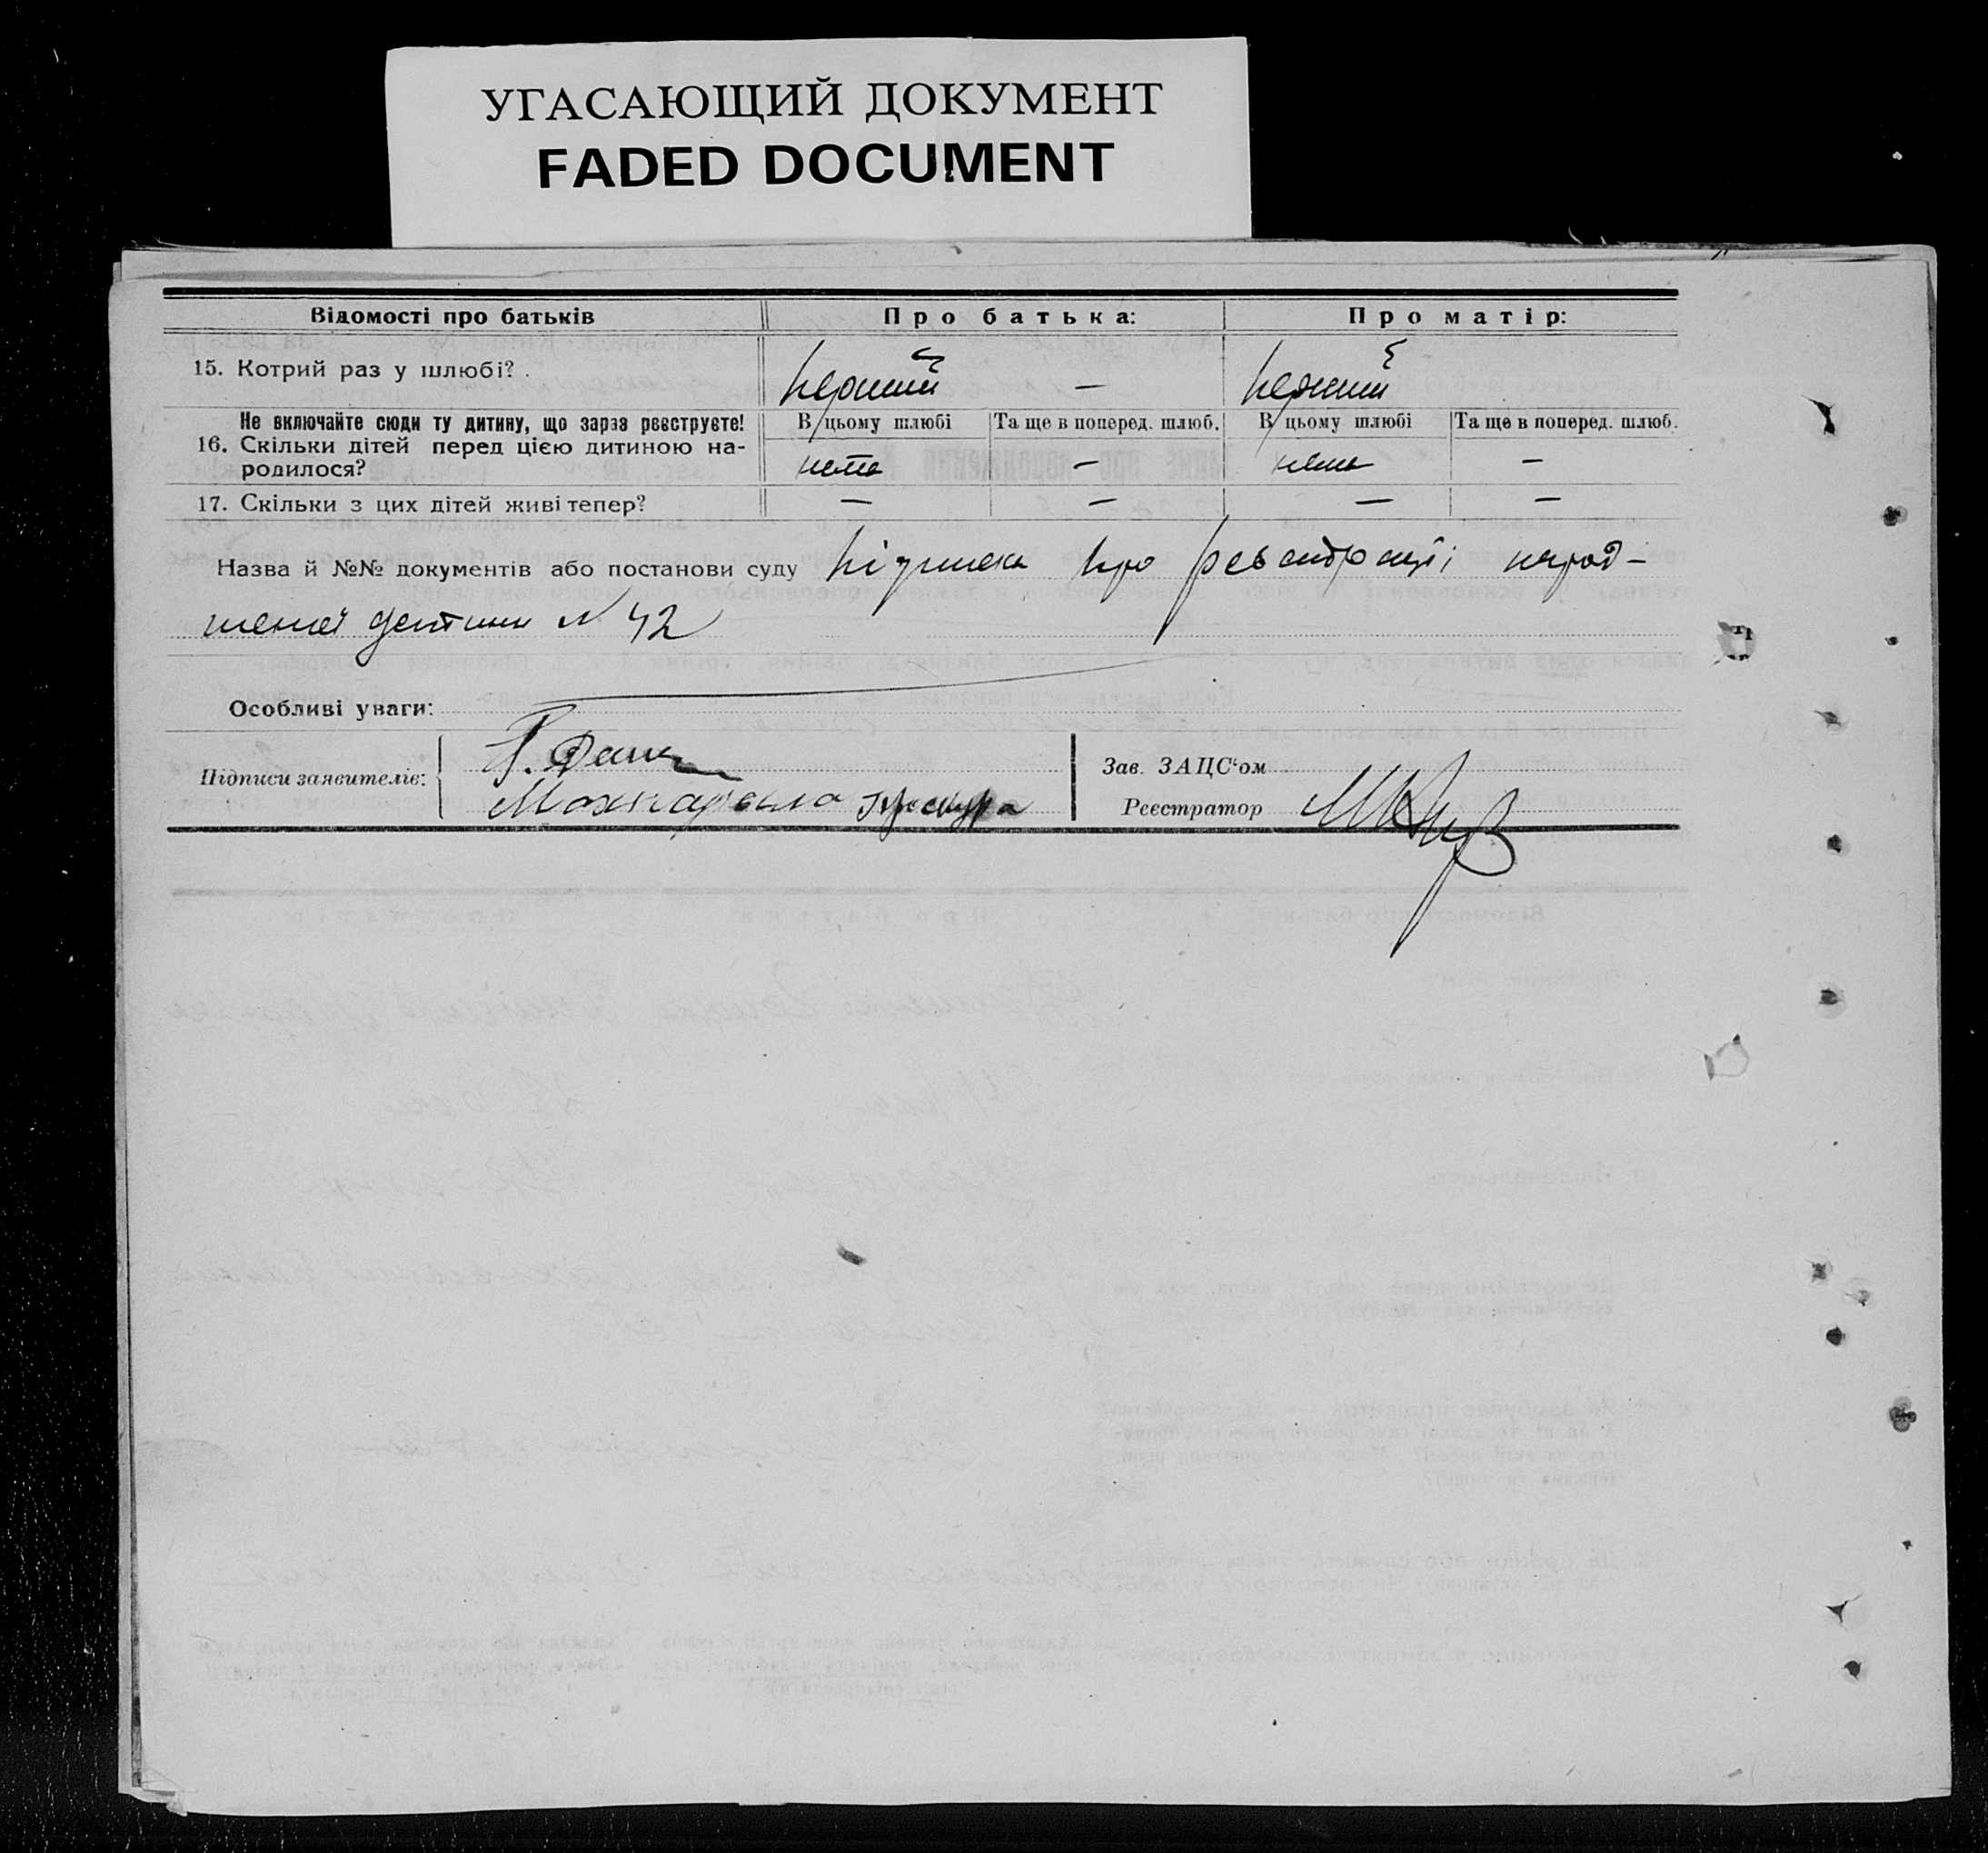 УГАСАЮЩИЙ ДОКУМЕНТ
FADED DOCUMENT
Відомості про батьків Про батька: Про матір:
15. Котрий раз у шлюбі? . перший — перший
Не включайте сюди ту дитину, що зараз реєструєте! В цьому шлюбі Та ще в поперед. шлюб. В цьому шлюбі Та ще в поперед. шлюб.
16. Скільки дітей перед цією дитиною на-
родилося? нема — нема —
17. Скільки з цих дітей живі тепер? — — — —
Назва й №№ документів або постанови суду підписка про реєстрації народ-
женої дитини N 42
Особливі уваги:
Підписи заявителів:
Зав. ЗАЦС‘ом
Реєстратор